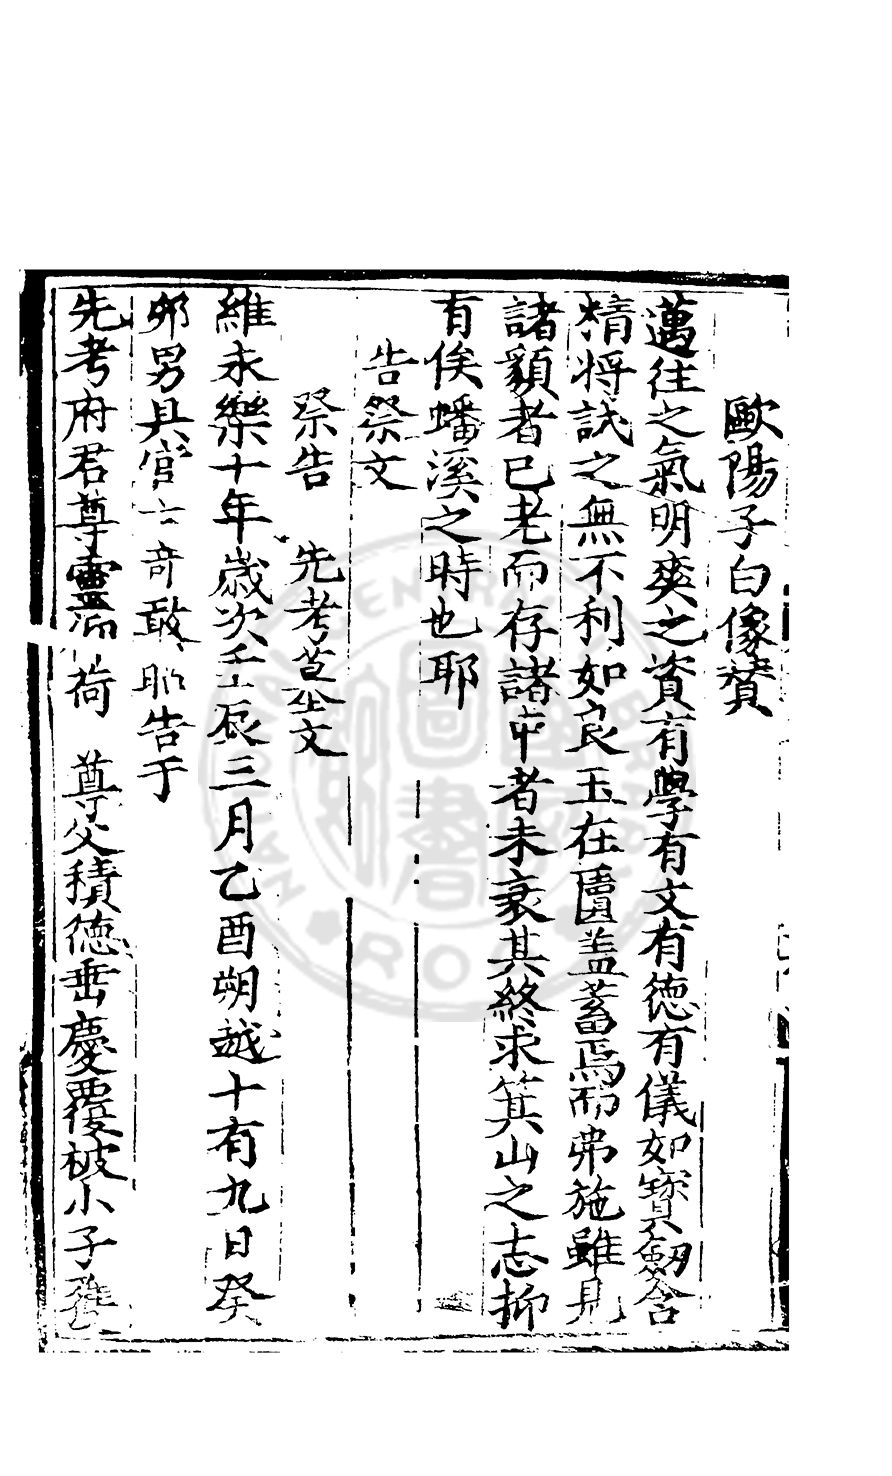 歐陽子白像賛
邁往之氣明爽之資有學有文有德有儀如寶劔含
精将試之無不利如良玉在匵盖蓄焉而弗施雖見
諸顙者已老而存諸中者未衰其終求箕山之志抑
有俟蟠溪之時也耶
告祭文
祭告 先考荁塋文
維永樂十年歲次壬辰三月乙酉朔越十有九日癸
卯男具官士奇敢昭告于
先考府君尊靈荷 尊父積德垂慶覆被小子